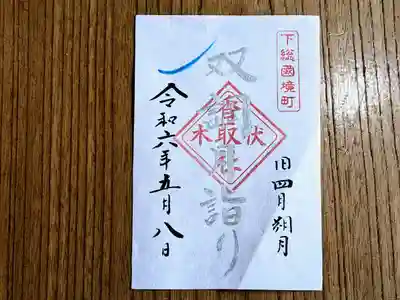 下総國境町
旧四月朔月
双細月詣り
伏木
香取
令和六年五月八日